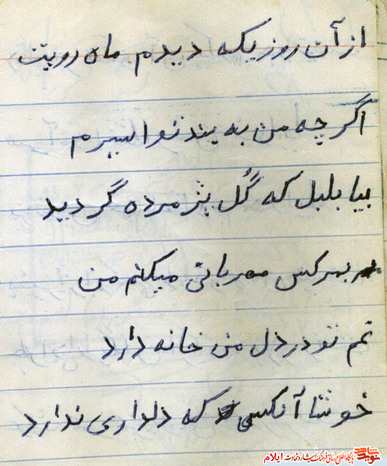 از آن روزیکه دیدم ماه رویت
اگر چه من به بند تو اسیرم
بیا بلبل که گُل پژمرده گردید
بهر کس مهربانی میکنم من
غم تو در دل من خانه دارد
خوشا آنکسی که دلداری ندارد
ایلام